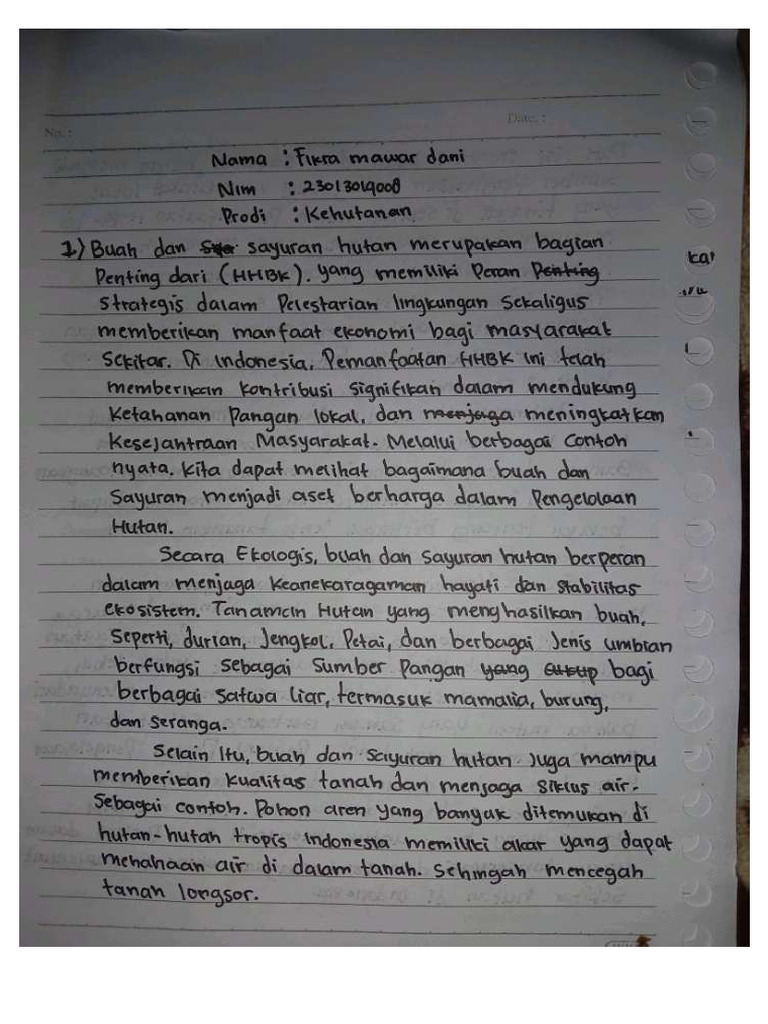 No. :
Date. :
Nama : Fikra mawar dani
Nim : 23013019008
Prodi : Kehutanan
1) Buah dan sayuran hutan merupakan bagian
Penting dari (HHBK). yang memiliki Peran Penting
Strategis dalam Pelestarian lingkungan Sekaligus
memberikan manfaat ekonomi bagi masyarakat
Sekitar. Di Indonesia, Pemanfaatan HHBK ini telah
memberikan Kontribusi Signifikan dalam mendukung
Ketahanan Pangan lokal, dan menjaga meningkatkan
Kesejantraan Masyarakat. Melalui berbagai Contoh
nyata. Kita dapat melihat bagaimana buah dan
Sayuran menjadi aset berharga dalam Pengelolaan
Hutan.
Secara Ekologis, buah dan sayuran hutan berperan
dalam menjaga Keanekaragaman hayati dan Stabilitas
ekosistem. Tanaman Hutan yang menghasilkan buah,
Seperti, durian, Jengkol, Petai, dan berbagai Jenis umbian
berfungsi Sebagai Sumber Pangan yang cukup bagi
berbagai satwa liar, termasuk mamalia, burung,
dan seranga.
Selain Itu, buah dan sayuran hutan Juga mampu
memberikan Kualitas tanah dan menjaga Siklus air.
Sebagai contoh. Pohon aren yang banyak ditemukan di
hutan-hutan tropis Indonesia memiliki akar yang dapat
menahaan air di dalam tanah. Sehingah mencegah
tanah longsor.